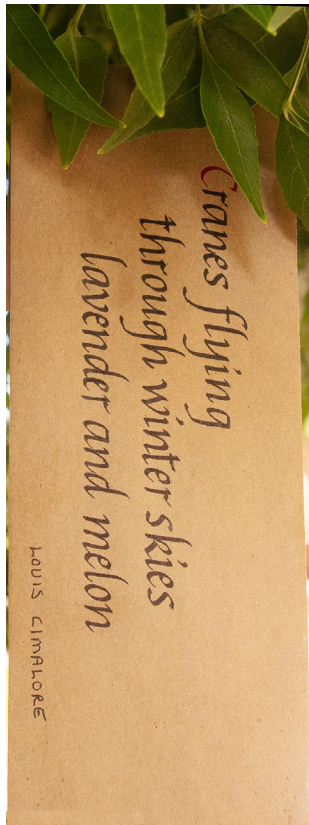 Cranes flying
through winter skies
lavender and melon
LOUIS CIMALORE